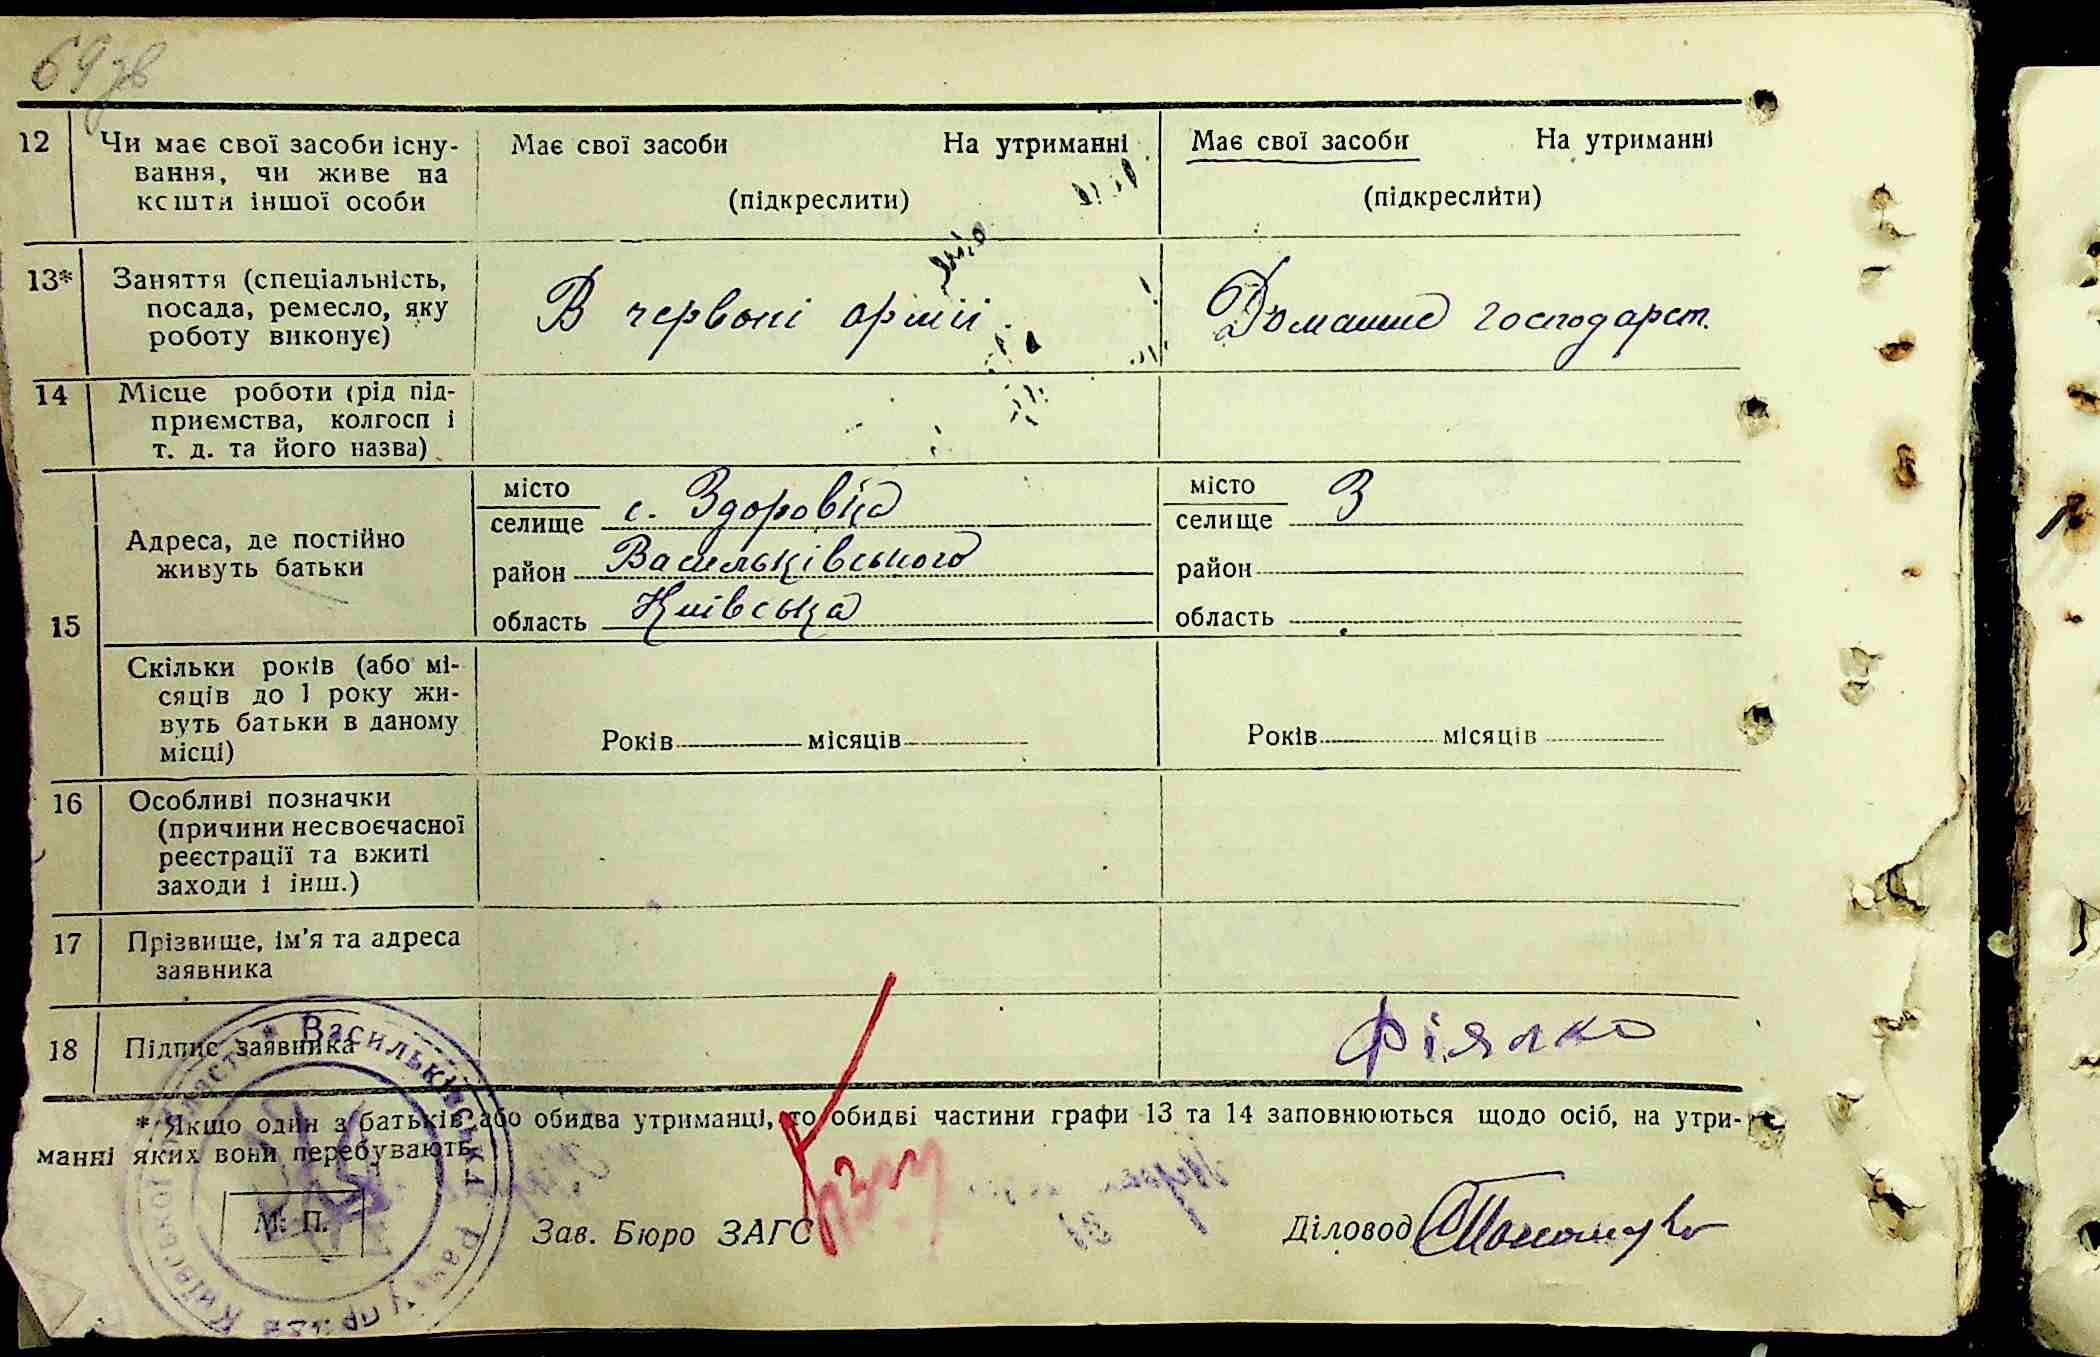 69 зв
12 Чи має свої засоби існу-
вання, чи живе на
кошти іншої особи
Має свої засоби На утриманні
(підкреслити)
Має свої засоби На утриманні
(підкреслити)
13* Заняття (спеціальність,
посада, ремесло, яку
роботу виконує)
В червоні армії
Домашнє господарст.
14 Місце роботи (рід під-
приємства, колгосп і
т. д. та його назва)
15
Адреса, де постійно
живуть батьки
місто
селище с. Здоровка
район Васильківського
область Київська
місто
селище З
район
область
Скільки років (або мі-
сяців до 1 року жи-
вуть батьки в даному
місці)
Років місяців
Років місяців
16 Особливі позначки
(причини несвоєчасної
реєстрації та вжиті
заходи і інш.)
17 Прізвище, ім'я та адреса
заявника
18 Підпис заявника
Фіялко
* Якщо один з батьків або обидва утриманці, то обидві частини графи 13 та 14 заповнюються щодо осіб, на утри-
манні яких вони перебувають.
М. П.
Зав. Бюро ЗАГС
Діловод